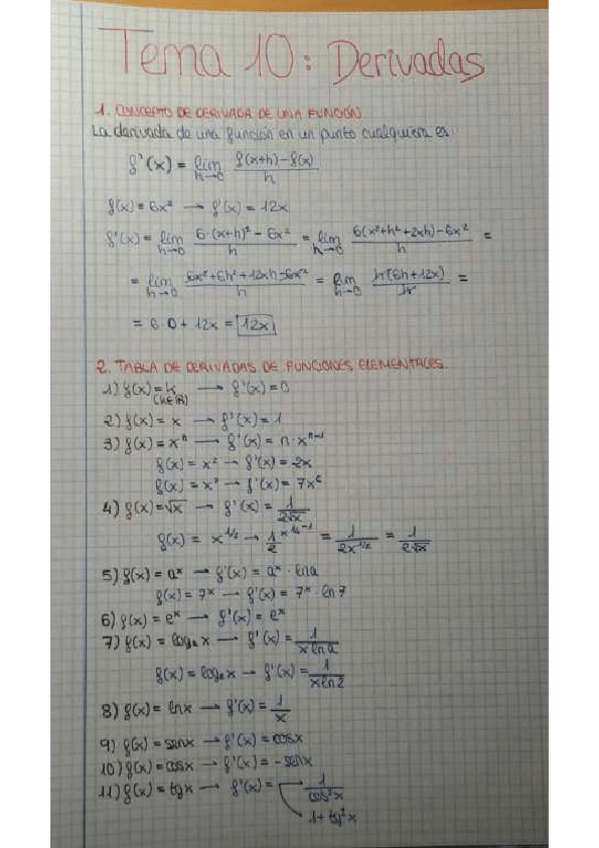 Tema 10: Derivadas
1. CONCEPTO DE DERIVADA DE UNA FUNCIÓN
La derivada de una función en un punto cualquiera es:
f'(x) = lim h→0 (f(x+h)-f(x))/h
f(x) = 6x² → f'(x) = 12x
f'(x) = lim h→0 (6·(x+h)² - 6x²)/h = lim h→0 (6(x²+h²+2xh)-6x²)/h =
= lim h→0 (6x²+6h²+12xh-6x²)/h = lim h→0 h(6h+12x)/h =
= 6·0 + 12x = 12x
2. TABLA DE DERIVADAS DE FUNCIONES ELEMENTALES.
1) f(x) = k → f'(x) = 0
(k∈ℝ)
2) f(x) = x → f'(x) = 1
3) f(x) = xⁿ → f'(x) = n·xⁿ⁻¹
f(x) = x² → f'(x) = 2x
f(x) = x⁷ → f'(x) = 7x⁶
4) f(x) = √x → f'(x) = 1/(2√x)
f(x) = x^(1/2) → 1/2 x^(1/2-1) = 1/(2x^(1/2)) = 1/(2√x)
5) f(x) = aˣ → f'(x) = aˣ · ln a
f(x) = 7ˣ → f'(x) = 7ˣ · ln 7
6) f(x) = eˣ → f'(x) = eˣ
7) f(x) = logₐ x → f'(x) = 1/(x ln a)
f(x) = log₂ x → f'(x) = 1/(x ln 2)
8) f(x) = ln x → f'(x) = 1/x
9) f(x) = sen x → f'(x) = cos x
10) f(x) = cos x → f'(x) = - sen x
11) f(x) = tg x → f'(x) = 1/cos²x
1 + tg²x